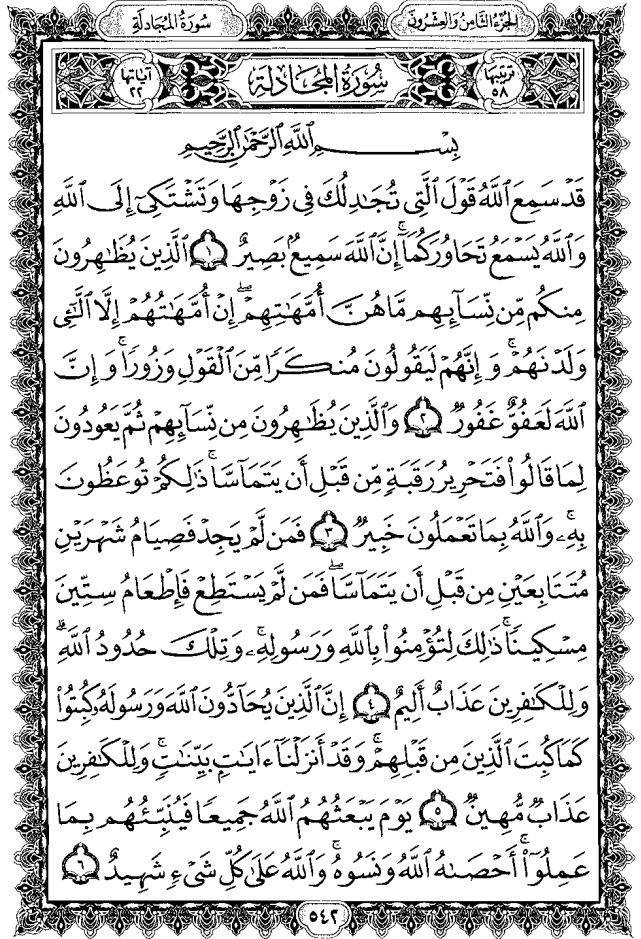 الجزء الثامن والعشرون
سورة المجادلة
ترتيبها ٥٨
سُورَةُ المُجَادلة
آياتها ٢٢
بِسْمِ ٱللَّهِ ٱلرَّحْمَٰنِ ٱلرَّحِيمِ
قَدْ سَمِعَ ٱللَّهُ قَوْلَ ٱلَّتِي تُجَٰدِلُكَ فِي زَوْجِهَا وَتَشْتَكِيٓ إِلَى ٱللَّهِ
وَٱللَّهُ يَسْمَعُ تَحَاوُرَكُمَآۚ إِنَّ ٱللَّهَ سَمِيعُۢ بَصِيرٌ ١ ٱلَّذِينَ يُظَٰهِرُونَ
مِنكُم مِّن نِّسَآئِهِم مَّا هُنَّ أُمَّهَٰتِهِمْۖ إِنْ أُمَّهَٰتُهُمْ إِلَّا ٱلَّٰٓـِٔي
وَلَدْنَهُمْۚ وَإِنَّهُمْ لَيَقُولُونَ مُنكَرًا مِّنَ ٱلْقَوْلِ وَزُورًاۚ وَإِنَّ
ٱللَّهَ لَعَفُوٌّ غَفُورٌ ٢ وَٱلَّذِينَ يُظَٰهِرُونَ مِن نِّسَآئِهِمْ ثُمَّ يَعُودُونَ
لِمَا قَالُوا۟ فَتَحْرِيرُ رَقَبَةٍ مِّن قَبْلِ أَن يَتَمَآسَّاۚ ذَٰلِكُمْ تُوعَظُونَ
بِهِۦۚ وَٱللَّهُ بِمَا تَعْمَلُونَ خَبِيرٌ ٣ فَمَن لَّمْ يَجِدْ فَصِيَامُ شَهْرَيْنِ
مُتَتَابِعَيْنِ مِن قَبْلِ أَن يَتَمَآسَّاۖ فَمَن لَّمْ يَسْتَطِعْ فَإِطْعَامُ سِتِّينَ
مِسْكِينًاۚ ذَٰلِكَ لِتُؤْمِنُوا۟ بِٱللَّهِ وَرَسُولِهِۦۚ وَتِلْكَ حُدُودُ ٱللَّهِۗ
وَلِلْكَٰفِرِينَ عَذَابٌ أَلِيمٌ ٤ إِنَّ ٱلَّذِينَ يُحَآدُّونَ ٱللَّهَ وَرَسُولَهُۥ كُبِتُوا۟
كَمَا كُبِتَ ٱلَّذِينَ مِن قَبْلِهِمْۚ وَقَدْ أَنزَلْنَآ ءَايَٰتٍۭ بَيِّنَٰتٍۚ وَلِلْكَٰفِرِينَ
عَذَابٌ مُّهِينٌ ٥ يَوْمَ يَبْعَثُهُمُ ٱللَّهُ جَمِيعًا فَيُنَبِّئُهُم بِمَا
عَمِلُوٓا۟ۚ أَحْصَىٰهُ ٱللَّهُ وَنَسُوهُۚ وَٱللَّهُ عَلَىٰ كُلِّ شَيْءٍ شَهِيدٌ ٦
٥٤٢